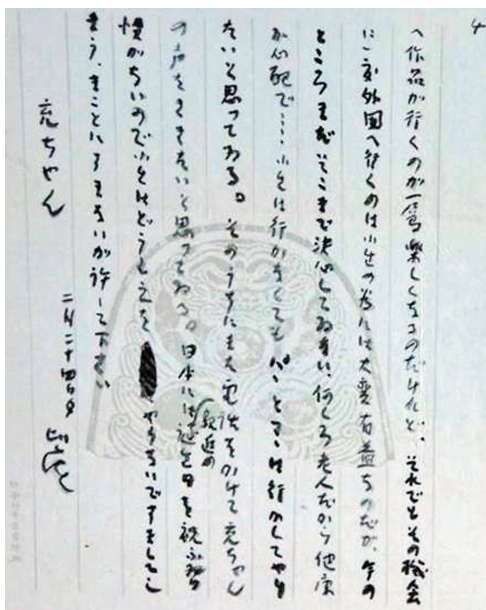 4
へ作品が行くのが一番楽しくなるのだけれど、それでもその機会
に一度外国へ行くのは小生の為には大変有益なのだが、今の
ところまだそこまで決心してゐない、何しろ老人だから健康
が心配で……小生は行かなくても は行かしてやり
たいと思ってゐる。そのうちにまた電話をかけて ちゃん
の声をききたいと思ってゐる。日本には最近の誕生日を祝ふ習
慣がないので小生はどうも之をやらないですましてし
まう、まことにすまないが許して下さい
ちゃん
二月二十四日